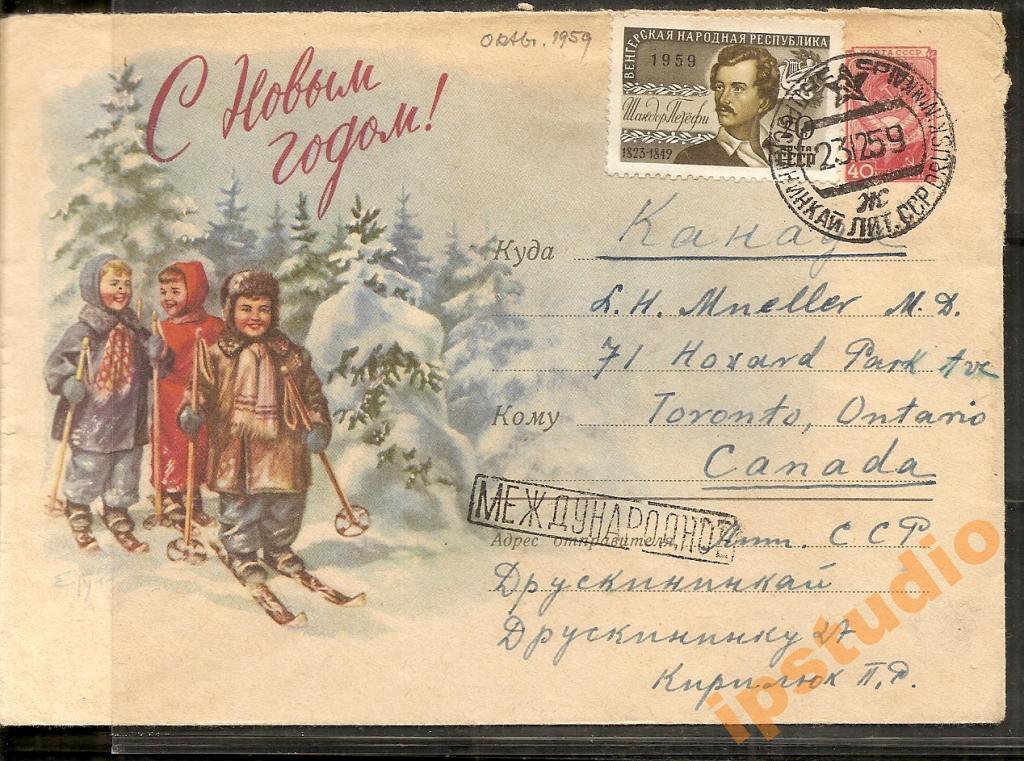 С Новым
годом!
октяб. 1959
ВЕНГЕРСКАЯ НАРОДНАЯ РЕСПУБЛИКА
1959
Шандор Петефи
1823-1849
40
ПОЧТА
СССР
ПОЧТА СССР
40
231259
Ж
ЛИТ. ССР DRUSKININKAI
Куда Канада
L. H. Mueller M. D.
71 Howard Park Ave
Кому Toronto, Ontario
Canada
МЕЖДУНАРОДНОЕ
Адрес отправителя Лит. ССР
Друскининкай
Друскининку 27
Кирилюк П. Р.
ipstudio